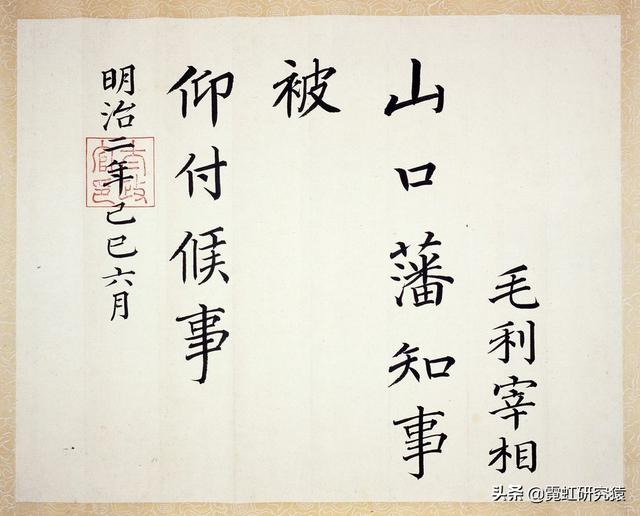 毛利宰相
山口藩知事
被
仰付候事
明治二年己巳六月
太政官印
头条 @霓虹研究猿